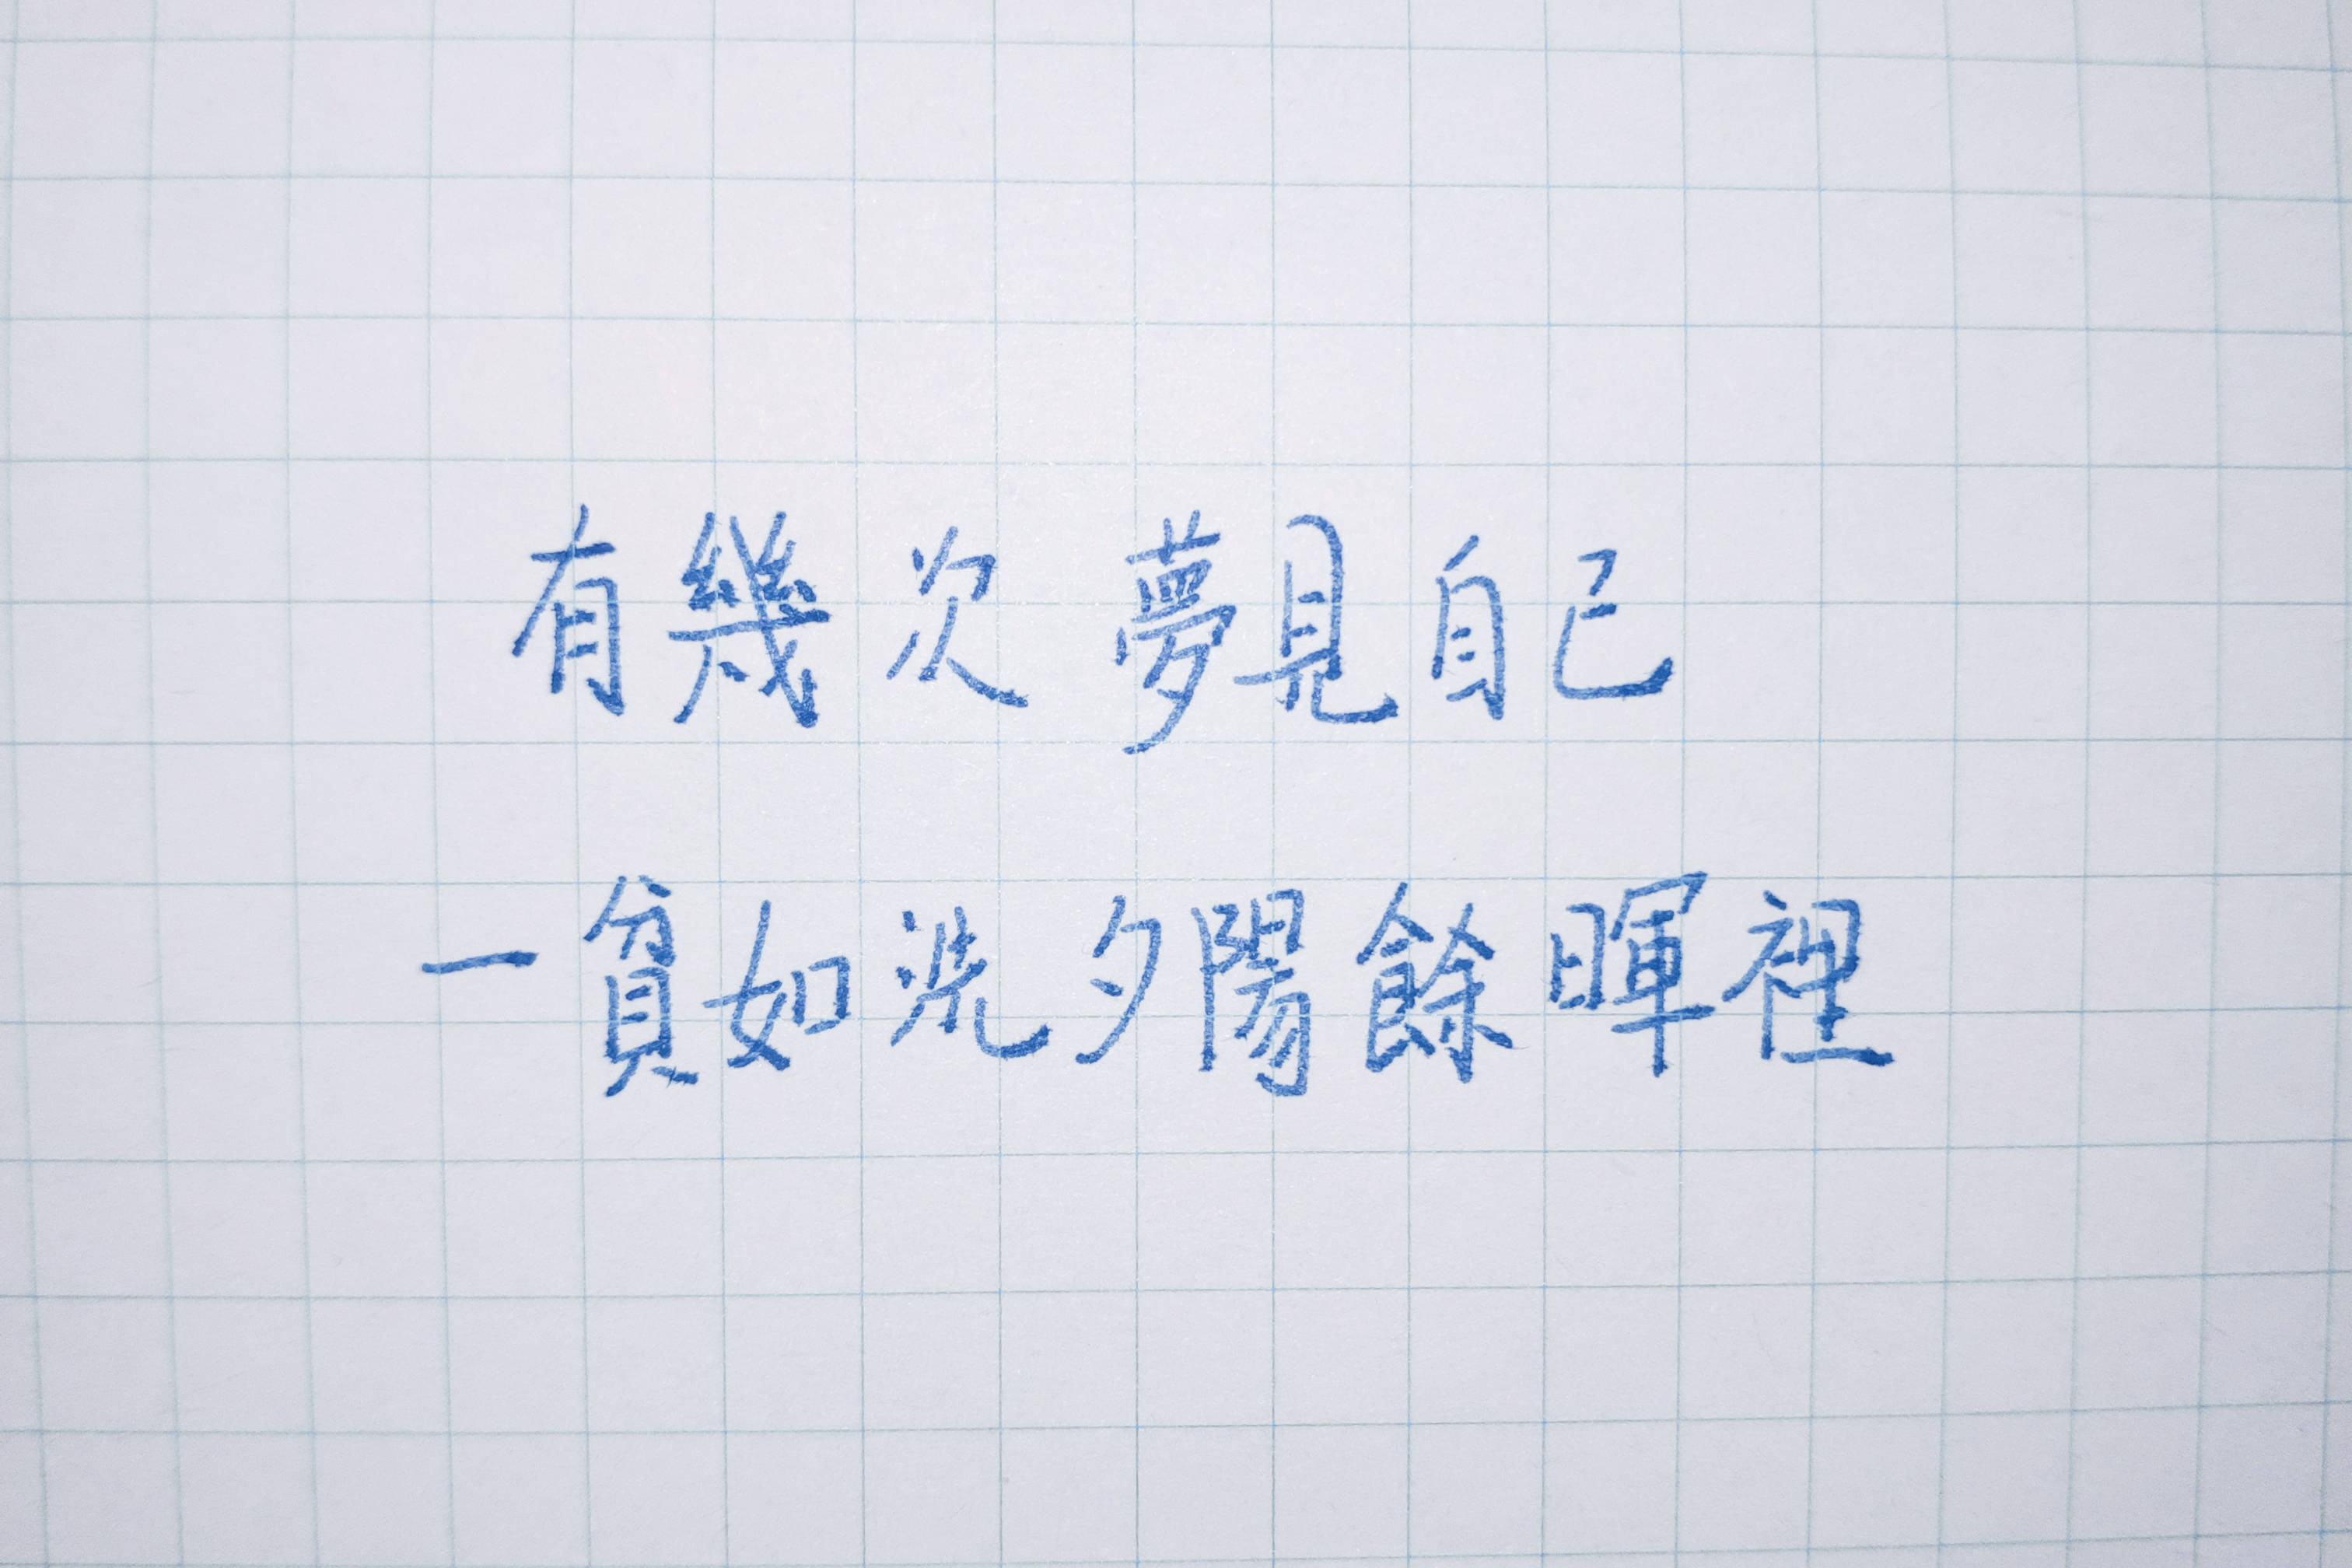 有幾次 夢見自己
一貧如洗夕陽餘暉裡